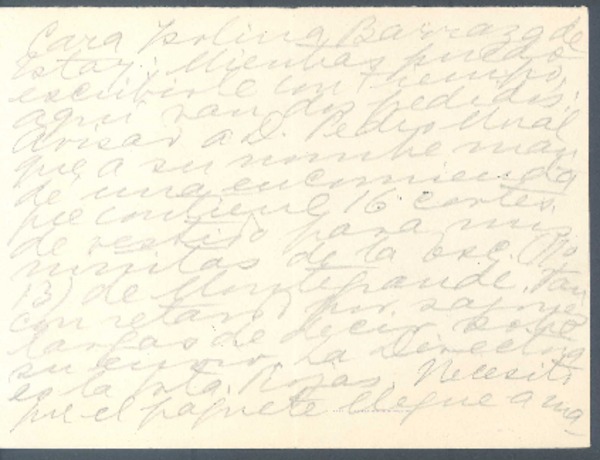 Cara Isolina Barraza de
Estay: Mientras puedo
escribirle con tiempo,
aquí van dos pedidos:
avisar a D. Pedro Moral
que a su nombre man-
dé una encomienda
que contiene 16 cortes
de vestido para mis
niñitas de la esc. (No
13) de Montegrande. Van
con retardo por razones
largas de decir sobre
su envío. La Directora
es la Srta. Rojas. Necesito
que el paquete llegue a ma-